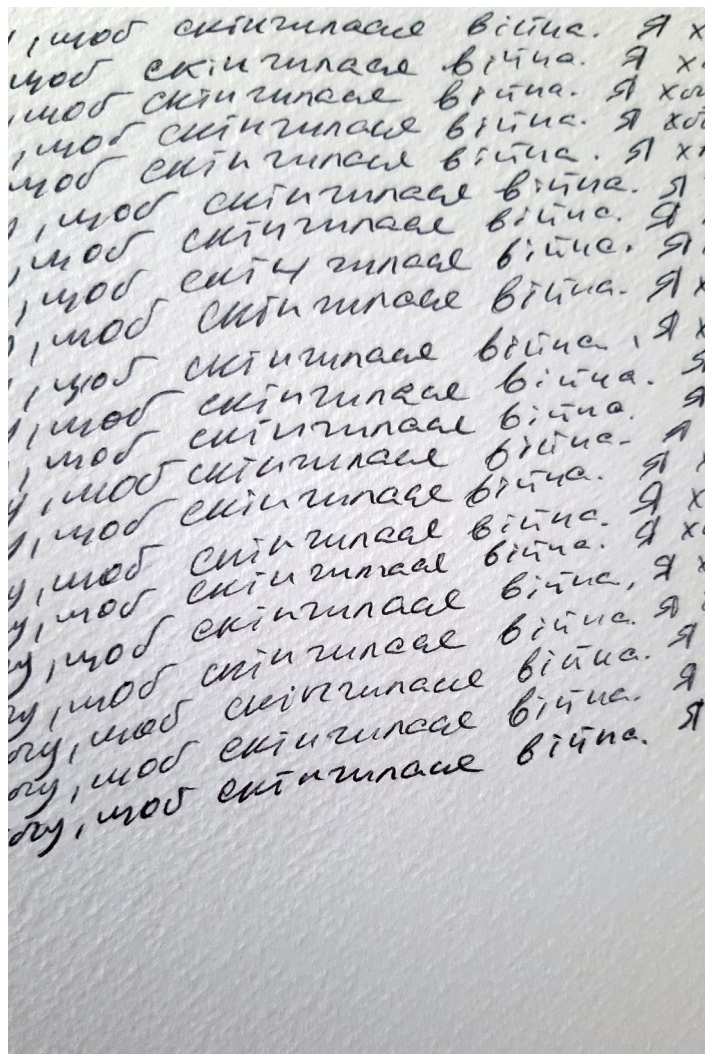 , щоб скінчилася війна. Я х
щоб скінчилася війна. Я х
, щоб скінчилася війна. Я хоч
, щоб скінчилася війна. Я хо
щоб скінчилася війна. Я х
, щоб скінчилася війна. Я
, щоб скінчилася війна. Я
, щоб скінчилася війна. Я
, щоб скінчилася війна. Я х
, щоб скінчилася війна. Я х
, щоб скінчилася війна. Я
, щоб скінчилася війна. Я
у, щоб скінчилася війна. Я
у, щоб скінчилася війна. Я х
у, щоб скінчилася війна. Я х
у, щоб скінчилася війна. Я х
у, щоб скінчилася війна, Я х
чу, щоб скінчилася війна. Я
очу, щоб скінчилася війна. Я
очу, щоб скінчилася війна. Я
очу, щоб скінчилася війна. Я